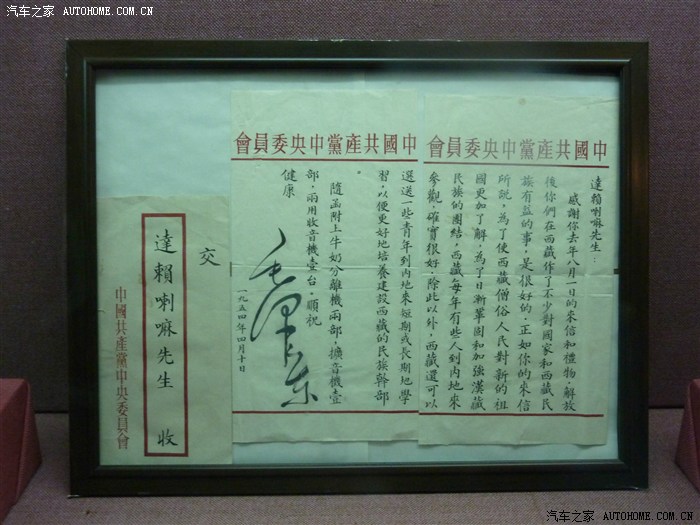 汽车之家 AUTOHOME.COM.CN
中國共產黨中央委員會
達賴喇嘛先生：
感謝你去年八月一日的來信和禮物，解放
後你們在西藏作了不少對國家和西藏民
族有益的事，是很好的，正如你的來信
所說，為了使西藏僧俗人民對新的祖
國更加了解，為了日漸鞏固和加強漢藏
民族的團結，西藏每年有些人到內地來
參觀，確實很好，除此以外，西藏還可以
中國共產黨中央委員會
選送一些青年到內地來短期或長期地學
習，以便更好地培養建設西藏的民族幹部
隨函附上牛奶分離機兩部，擴音機壹
部，兩用收音機壹台，順祝
健康
毛澤東
一九五四年四月十日
交
達賴喇嘛先生 收
中國共產黨中央委員會
汽车之家 AUTOHOME.COM.CN